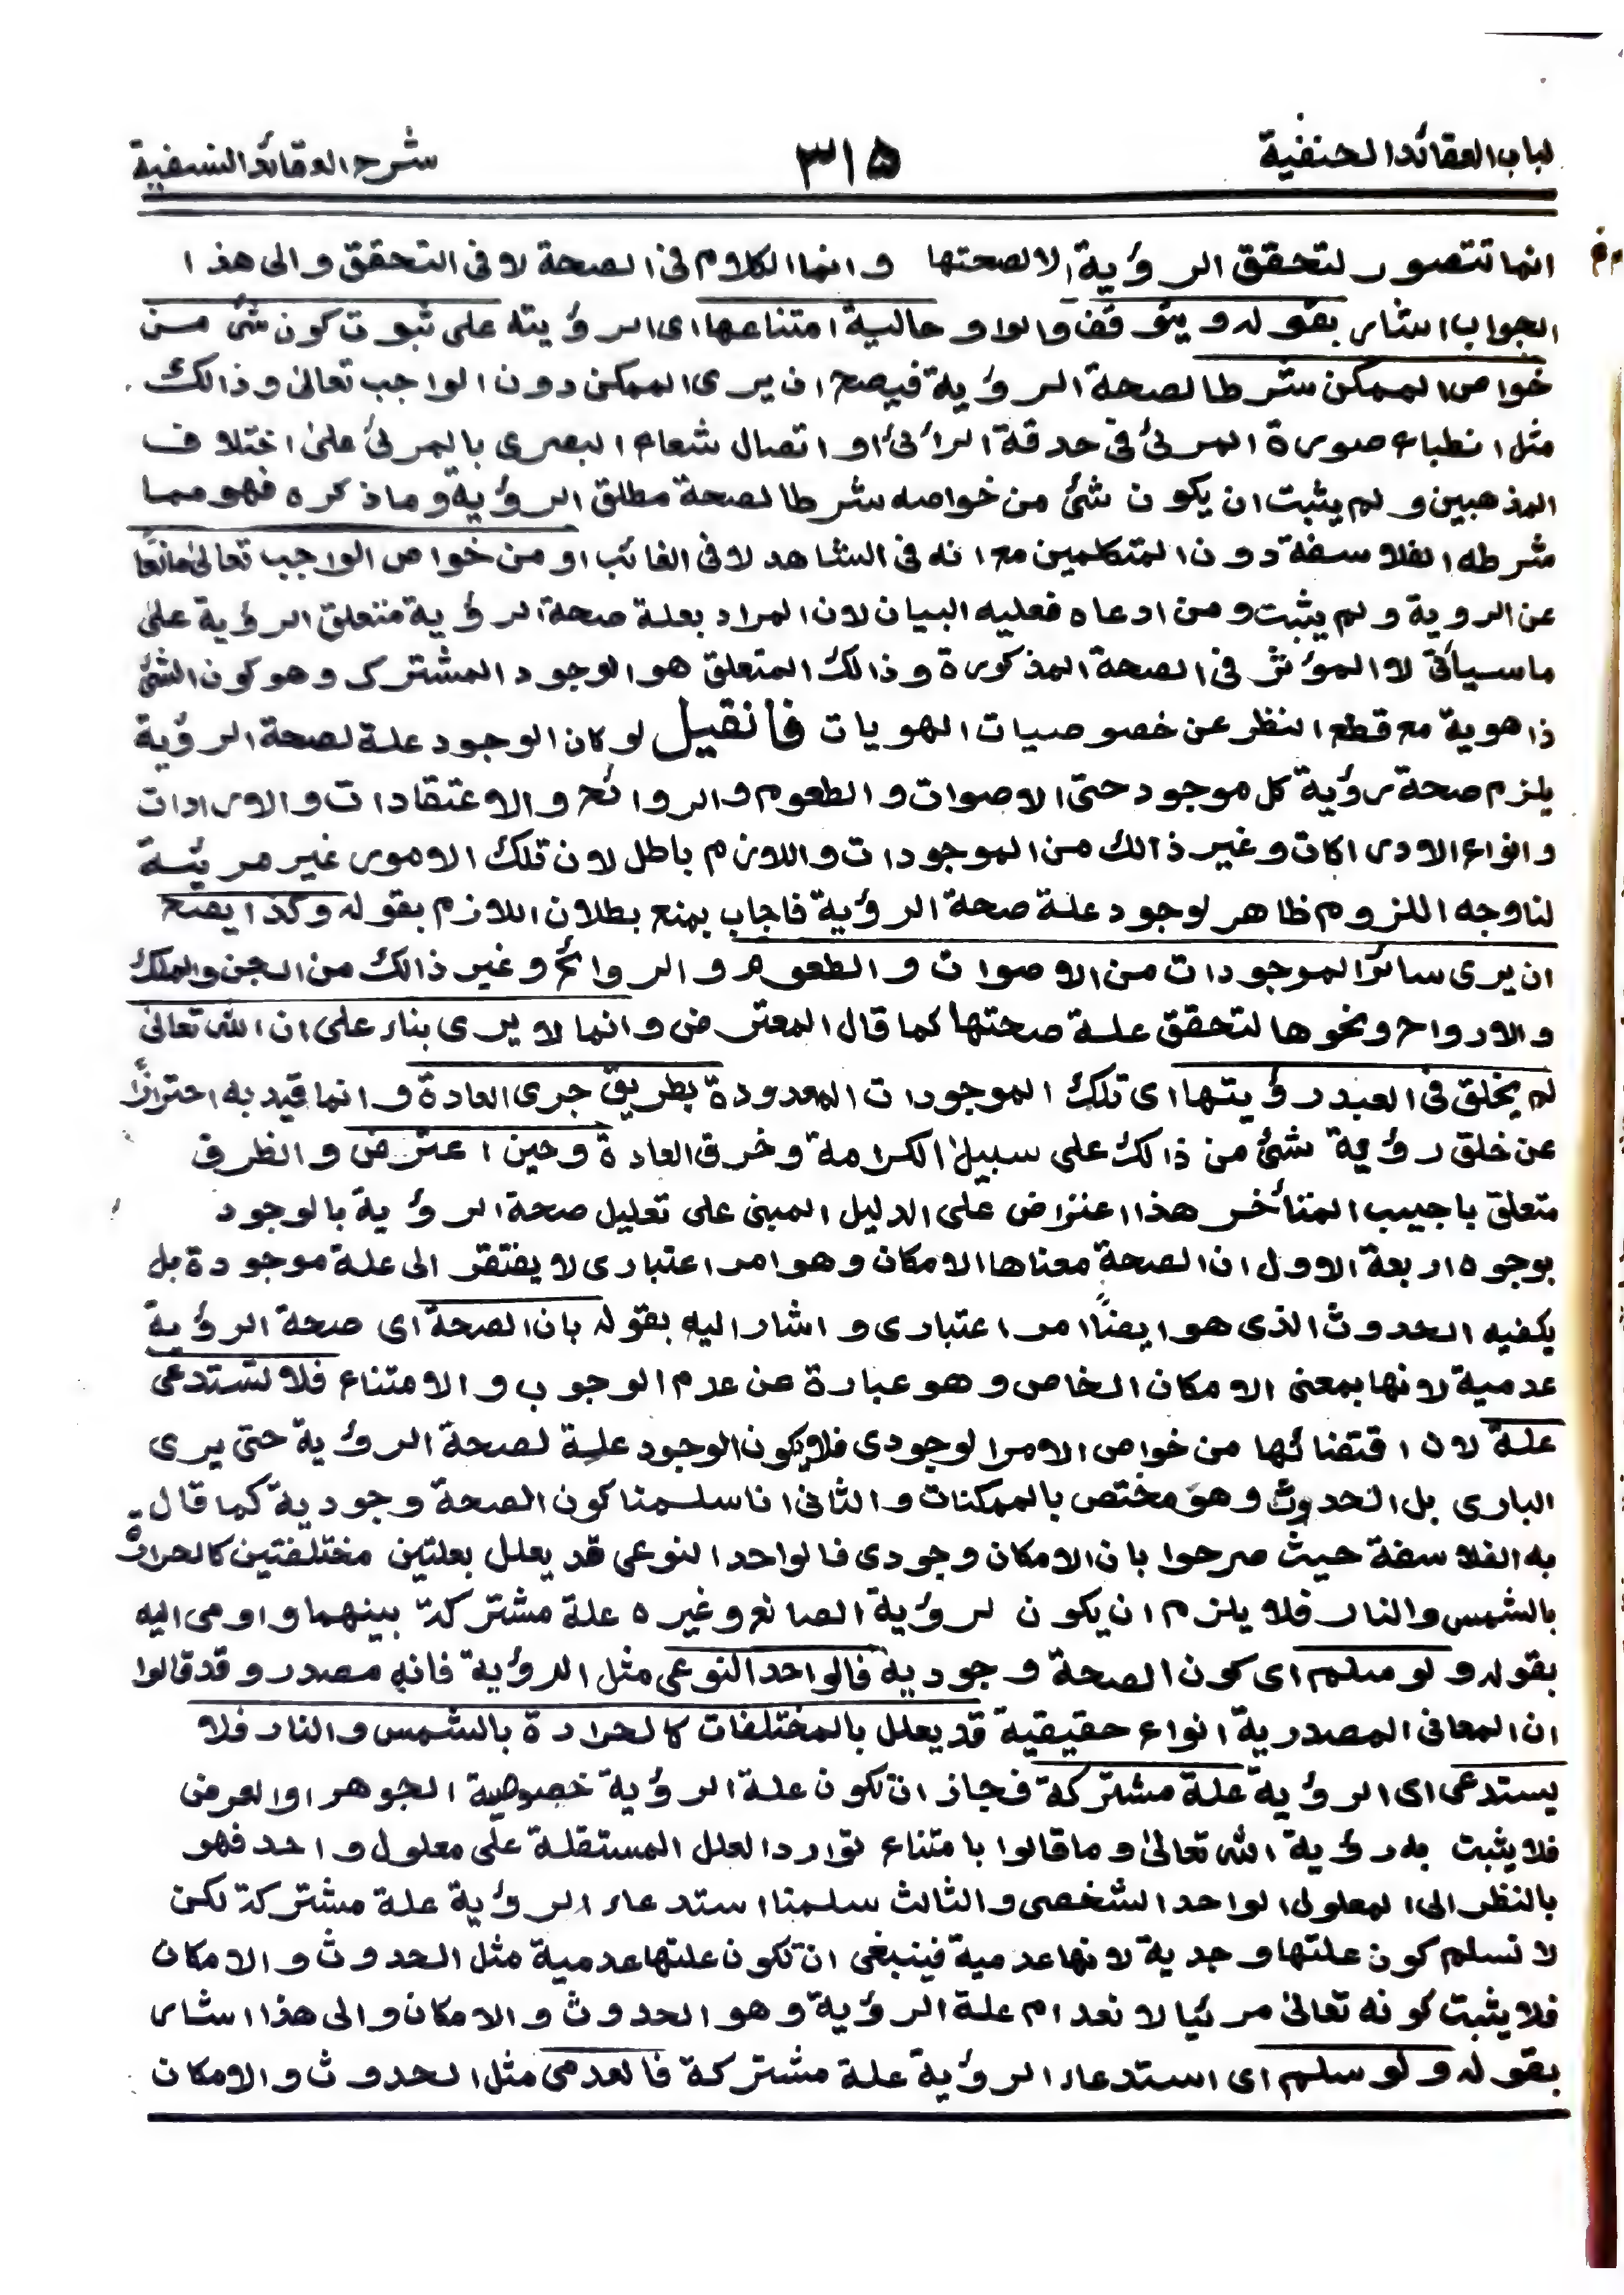 لباب العقائد الحنفية
٣١٥
شرح العقائد النسفية
انما تتصور لتحقق الرؤية لا لصحتها وانما الكلام فى الصحة لا فى التحقق والى هذا
الجواب اشار بقوله ويتوقف والواو حالية امتناعها اى الرؤيته على ثبوت كون شئ من
خواص الممكن شرطا لصحة الرؤية فيصح ان يرى الممكن دون الواجب تعالى وذالك
مثل انطباع صورة المرئى فى حدقة الرائى او اتصال شعاع البصرى بالمرئى على اختلاف
المذهبين ولم يثبت ان يكون شئ من خواصه شرطا لصحة مطلق الرؤية وما ذكره فهو مما
شرطه الفلاسفة دون المتكلمين مع انه فى الشاهد لا فى الغائب او من خواص الواجب تعالى مانعًا
عن الروية ولم يثبت ومن ادعاه فعليه البيان لان المراد بعلة صحة الرؤية متعلق الرؤية على
ما سيأتى لا المؤثر فى الصحة المذكورة وذالك المتعلق هو الوجود المشترك وهو كون الشئ
ذا هوية مع قطع النظر عن خصوصيات الهويات فان قيل لو كان الوجود علة لصحة الرؤية
يلزم صحة رؤية كل موجود حتى الاصوات والطعوم والروائح والاعتقادات والارادات
وانواع الادراكات وغير ذالك من الموجودات واللازم باطل لان تلك الامور غير مرئية
لنا وجه اللزوم ظاهر لوجود علة صحة الرؤية فاجاب بمنع بطلان اللازم بقوله وكذا يصح
ان يرى سائر الموجودات من الاصوات والطعوم والروائح وغير ذالك من الجن والملك
والارواح ونحوها لتحقق علة صحتها كما قال المعترض وانما لا يرى بناء على ان الله تعالى
لم يخلق فى العبد رؤيتها اى تلك الموجودات المعدودة بطريق جرى العادة وانما قيد به احترازًا
عن خلق رؤية شئ من ذالك على سبيل الكرامة وخرق العادة وحين اعترض والظرف
متعلق باجيب المتأخر هذا اعتراض على الدليل المبنى على تعليل صحة الرؤية بالوجود
بوجوه اربعة الاول ان الصحة معناها الامكان وهو امر اعتبارى لا يفتقر الى علة موجودة بل
يكفيه الحدوث الذى هو ايضًا امر اعتبارى واشار اليه بقوله بان الصحة اى صحة الرؤية
عدمية لانها بمعنى الامكان الخاص وهو عبارة عن عدم الوجوب والامتناع فلا تستدعى
علة لان اقتضائها من خواص الامر الوجودى فلا يكون الوجود علة لصحة الرؤية حتى يرى
البارى بل الحدوث وهو مختص بالممكنات والثانى انا سلمنا كون الصحة وجودية كما قال
به الفلاسفة حيث صرحوا بان الامكان وجودى فالواحد النوعى قد يعلل بعلتين مختلفتين كالحرارة
بالشمس والنار فلا يلزم ان يكون لرؤية الصانع وغيره علة مشتركة بينهما واومى اليه
بقوله ولو سلم اى كون الصحة وجودية فالواحد النوعى مثل الرؤية فانه مصدر وقد قالوا
ان المعانى المصدرية انواع حقيقية قد يعلل بالمختلفات كالحرارة بالشمس والنار فلا
يستدعى اى الرؤية علة مشتركة فجاز ان تكون علة الرؤية خصوصية الجوهر او العرض
فلا يثبت به رؤية الله تعالى وما قالوا بامتناع توارد العلل المستقلة على معلول واحد فهو
بالنظر الى المعلول الواحد الشخصى والثالث سلمنا استدعاء الرؤية علة مشتركة لكن
لا نسلم كون علتها وجدية لانها عدمية فينبغى ان تكون علتها عدمية مثل الحدوث والامكان
فلا يثبت كونه تعالى مرئيا لانعدام علة الرؤية وهو الحدوث والامكان والى هذا اشار
بقوله ولو سلم اى استدعاء الرؤية علة مشتركة فالعدمى مثل الحدوث والامكان